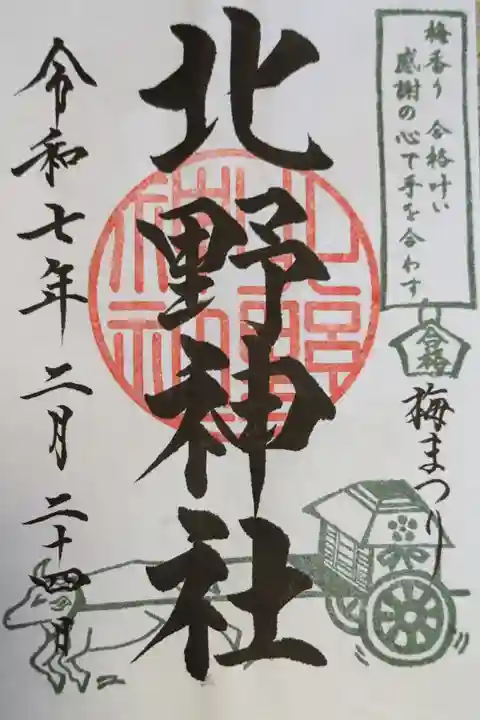 梅香り 合格叶い
感謝の心で手を合わす
合格
梅まつり
北野神社
令和七年 二月 二十四日